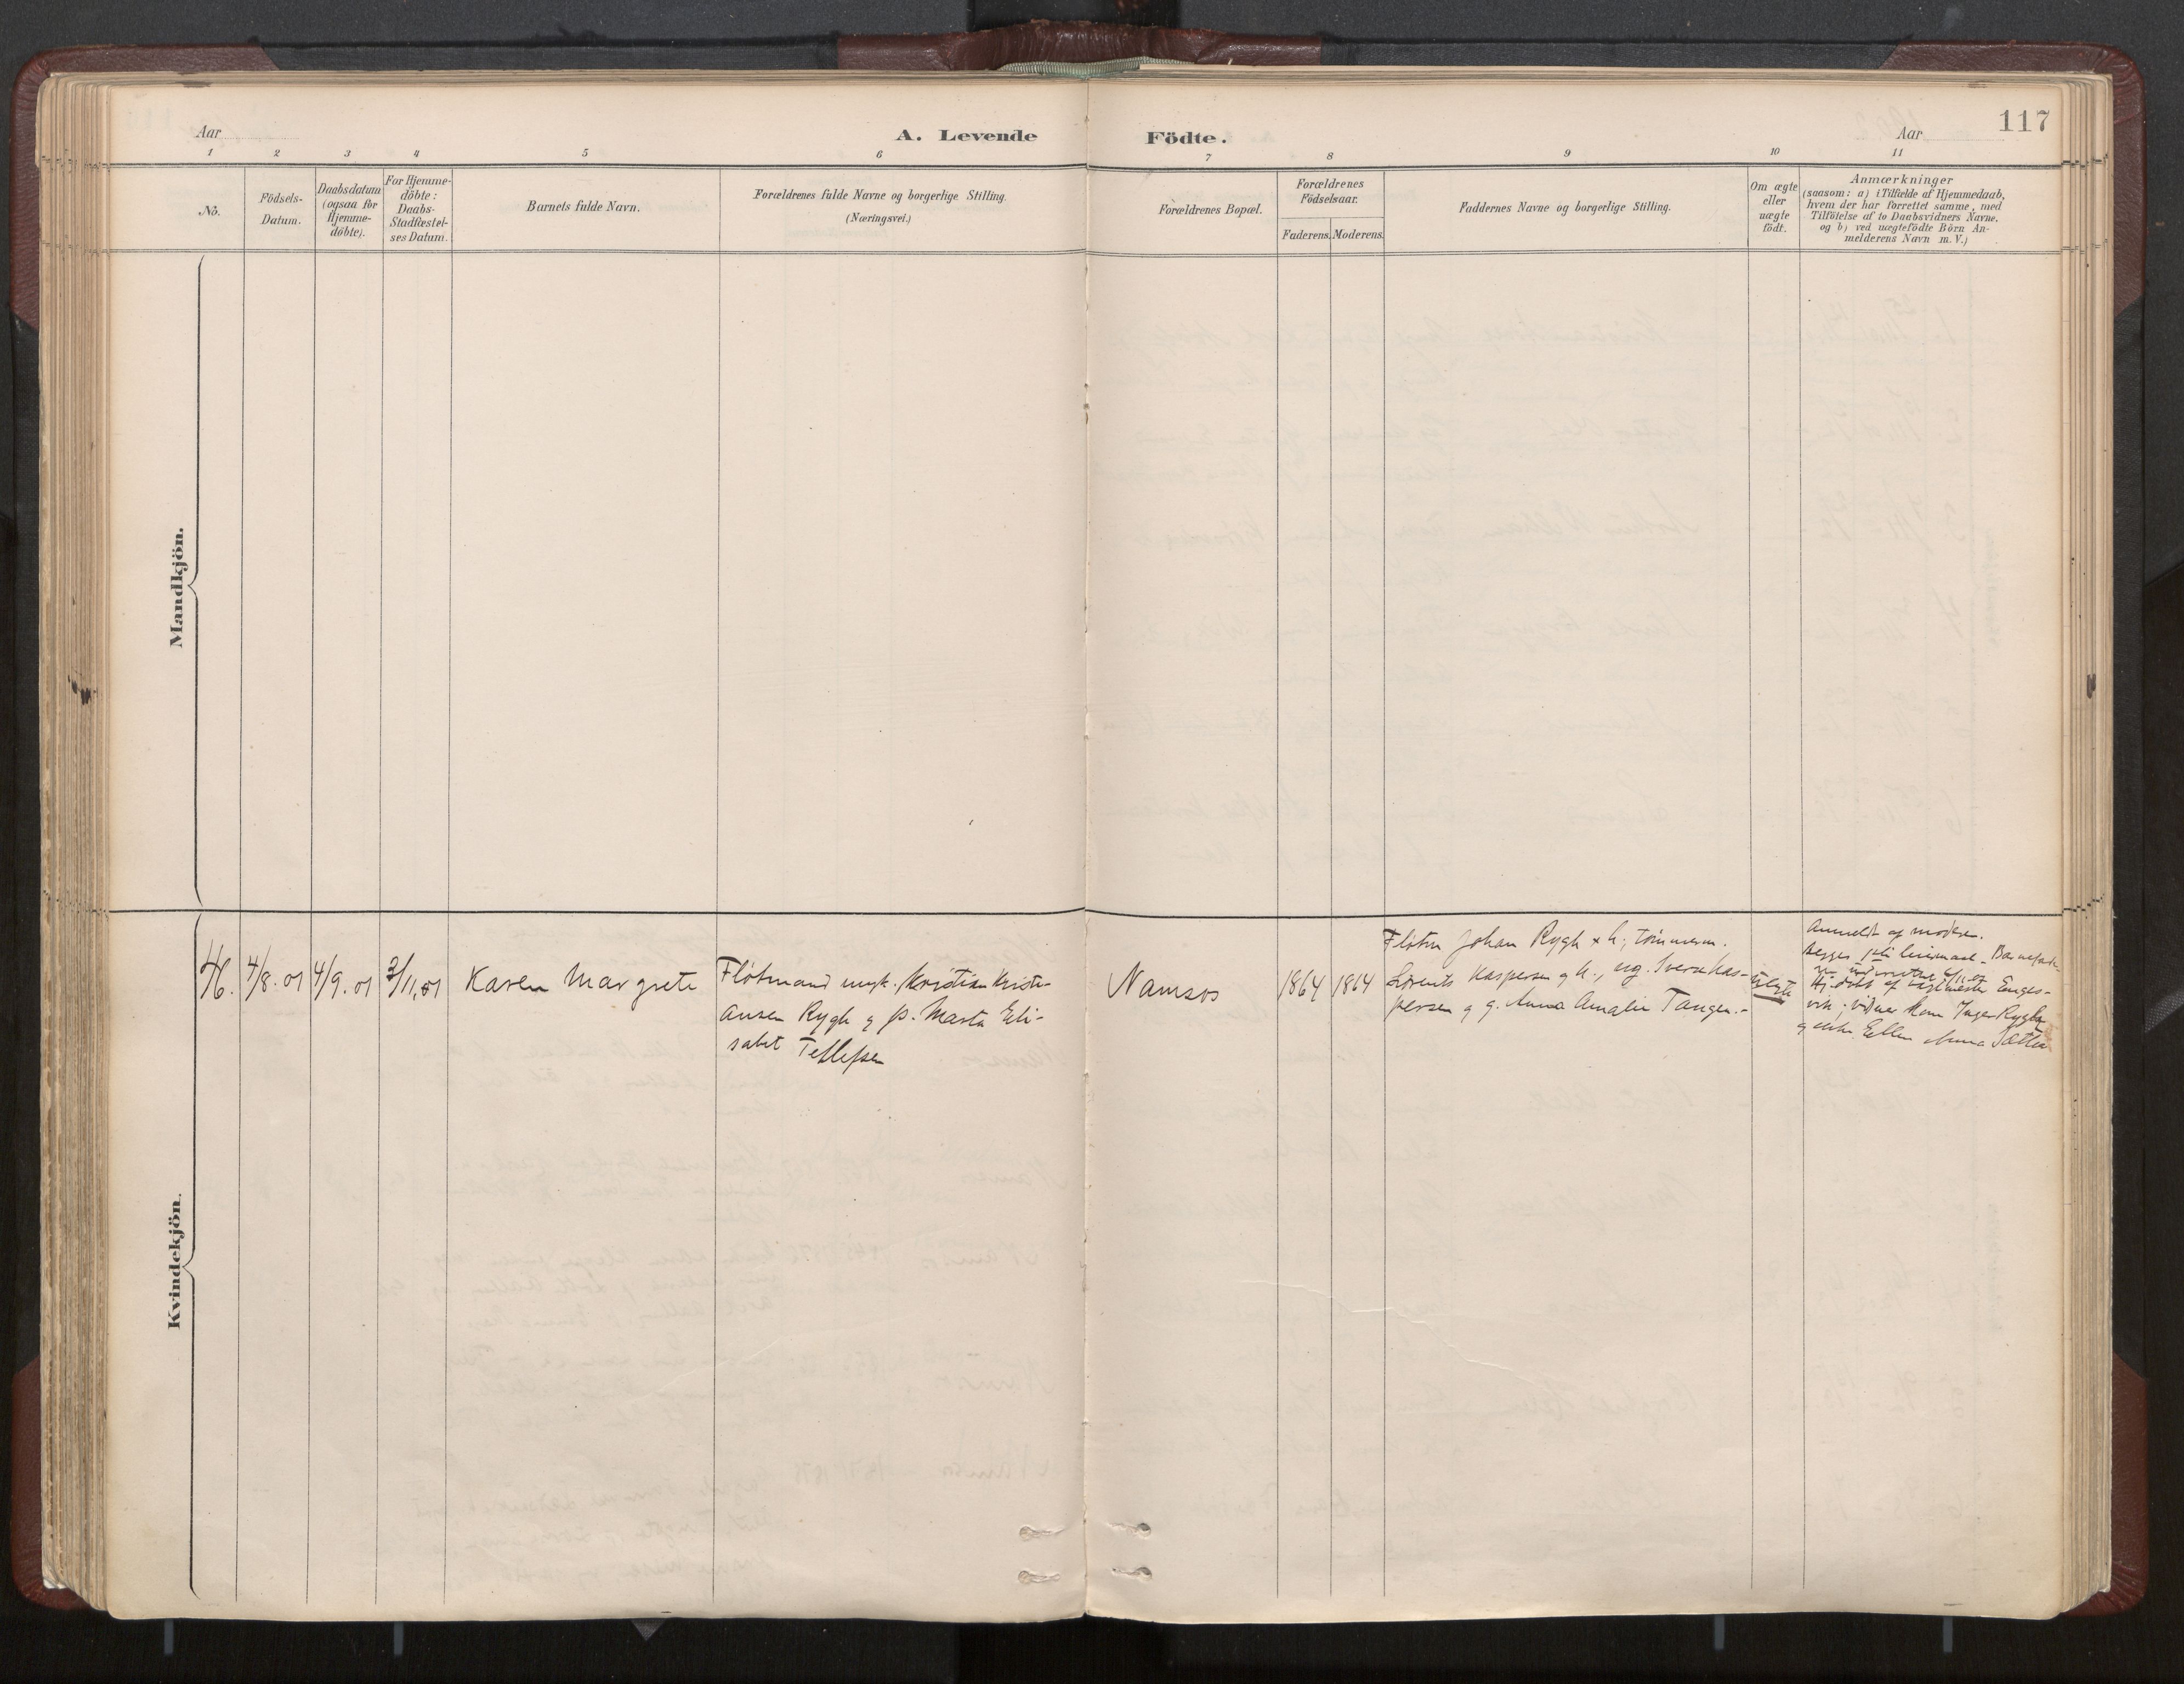 117
Aar
A. Levende Födte.
Aar
1 2 3 4 5 6 7 8 9 10 11
No.
Födsels-
Datum.
Daabsdatum
(ogsaa for
Hjemme-
döbte).
For Hjemme-
döbte:
Daabs-
Stadfæstel-
ses Datum.
Barnets fulde Navn.
Forældrenes fulde Navne og borgerlige Stilling.
(Næringsvei.)
Forældrenes Bopæl.
Forældrenes
Födselsaar.
Faderens. Moderens.
Faddernes Navne og borgerlige Stilling.
Om ægte
eller
uægte
födt.
Anmærkninger
(saasom: a) i Tilfælde af Hjemmedaab,
hvem der har forrettet samme, med
Tilföielse af to Daabsvidners Navne.
og b) ved uægtefödte Börn An-
melderens Navn m. V.)
Mandkjön.
Kvindekjön.
46.
4/8. 01
4/9. 01
3/11.01
Karen Margrete
Flötmand ungk. Kristian Kristi-
ansen Rygh g p. Marta Eli-
sabet Tellefsen
Namsos
1864
1864
Fløtm Johan Rygh & h; tömmerm.
Lorents Kaspersen g h., ug. Sverre Kas-
persen g g. Anna Amalie Tangen.-
uægte
Anmeldt af modern.
Begges leiermaal. Barnefade-
Hj. döbt af Enges-
vik; vidner kone Inger Rygh
g enke Ellen Anna Sætter